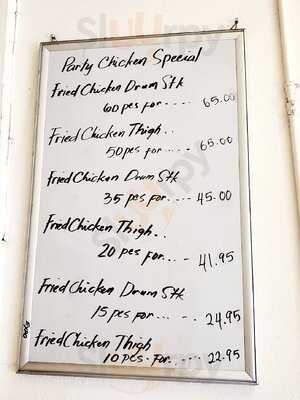 Party Chicken Special
Fried Chicken Drum Stk
60 pcs for.---- 65.00
Fried Chicken Thigh..
50 pcs for..... 65.00
Fried Chicken Drum Stk
35 pcs for.... 45.00
Fried Chicken Thigh..
20 pcs for... - 41.95
Fried Chicken Drum Stk
15 pcs for... - - 24.95
Fried Chicken Thigh
10 pcs. for..... 22.95
Sluurpy